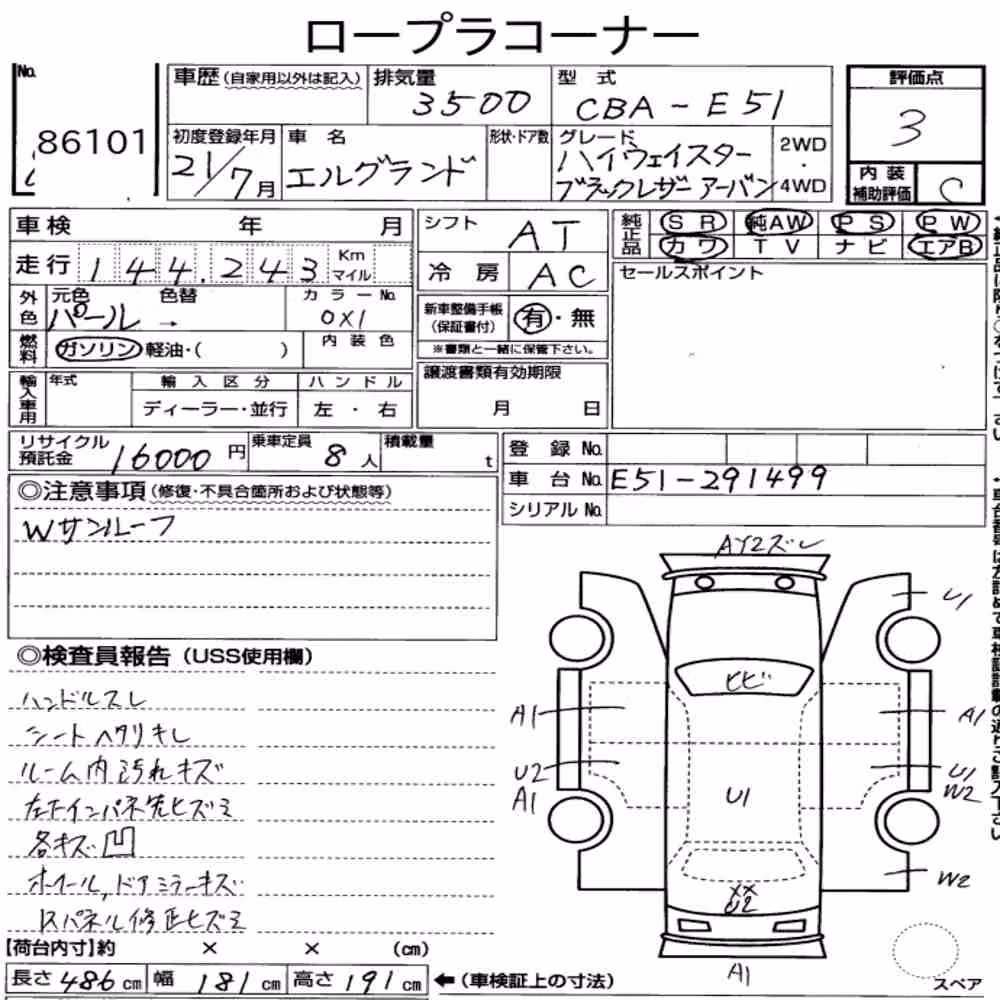 ロープラコーナー
No.
86101
車歴 (自家用以外は記入)
排気量
3500
型 式
CBA - E51
初度登録年月
21/7月
車 名
エルグランド
形状・ドア数
グレード
ハイウェイスター
ブラックレザーアーバン
2WD
・
4WD
評価点
3
内装
補助評価
C
車検 年 月
走行 144.243 Km
マイル
外色
元色 色替
パール →
カラーNo.
0X1
燃料
ガソリン 軽油・( )
内装色
輸入車用
年式
輸入区分
ディーラー・並行
ハンドル
左 ・ 右
シフト AT
冷房 AC
新車整備手帳
(保証書付)
有・無
※書類と一緒に保管下さい。
譲渡書類有効期限
月 日
純正品
SR 純AW PS PW
カワ TV ナビ エアB
セールスポイント
リサイクル
預託金 16000 円
乗車定員 8 人
積載量 t
登 録 No.
車 台 No. E51-291499
シリアル No.
◎注意事項 (修復・不具合箇所および状態等)
Wサンルーフ
◎検査員報告 (USS使用欄)
ハンドルスレ
シートヘタリキレ
ルーム内汚れキズ
左右インパネ先ヒズミ
各キズ凹
ホイール,ドアミラーキズ
Rスパネル修正ヒズミ
AY2ズレ
U1
ヒビ
A1
A1
U2
A1
U1
U1
W2
W2
XX
U2
A1
スペア
【荷台内寸】約 × × (cm)
長さ 486 cm 幅 181 cm 高さ 191 cm ←(車検証上の寸法)